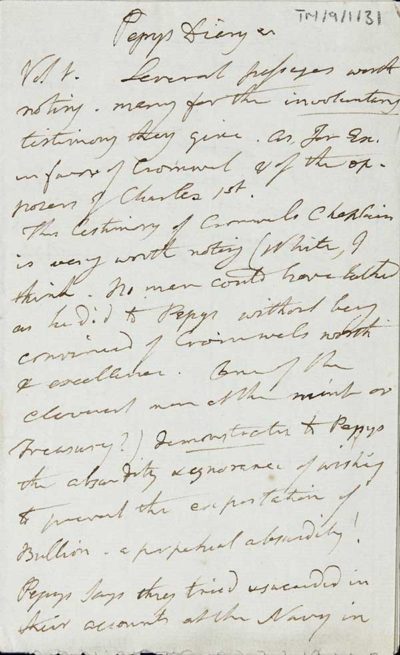 TM/9/1/31
Pepys Diary
Vol V. Several passages worth
noting. many for the involuntary
testimony they give. as, for Ex.
in favor of Cromwel & of the op-
posers of Charles 1st.
The testimony of Cromwels Chaplain
is very worth noting (White, I
think. No man could have talked
as he did to Pepys without being
convinced of Cromwels worth
& excellence. One of the
cleverest men at the mint or
Treasury?) demonstrates to Pepys
the absurdity & ignorance of wishing
to prevent the exportation of
Bullion - a perpetual absurdity!
Pepys says they tried & succeeded in
their accounts at the Navy in